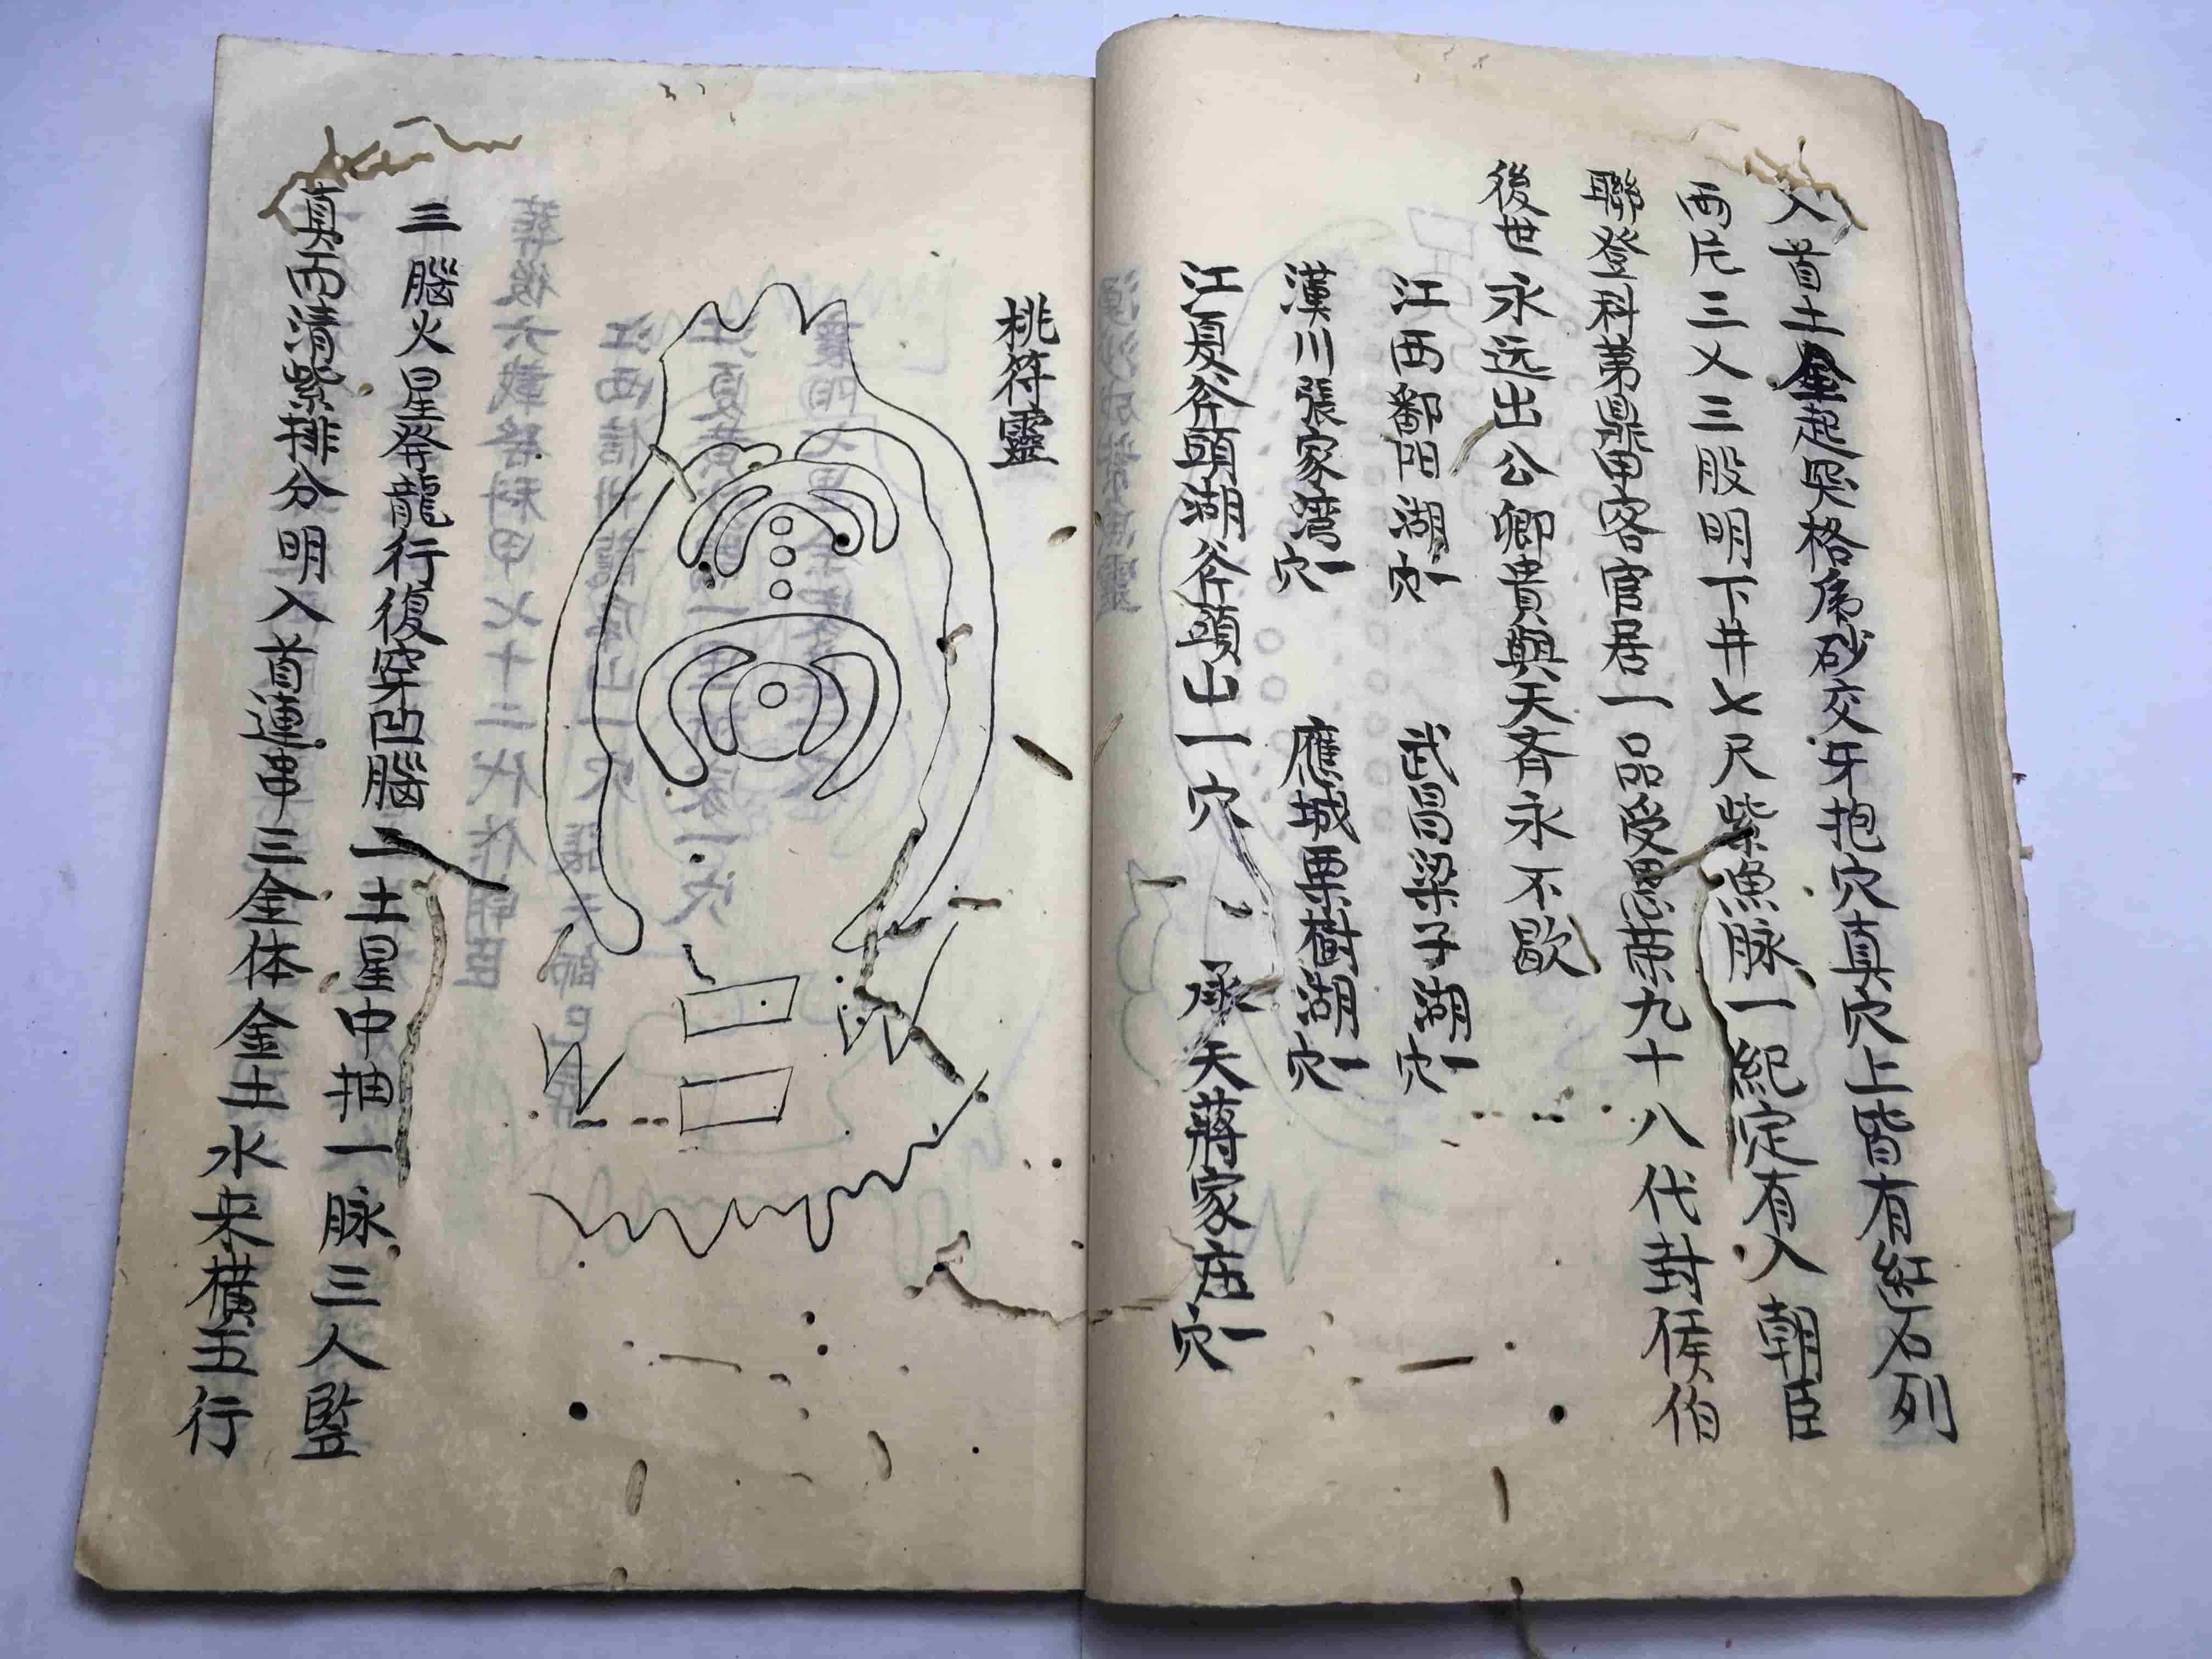 入首土金起異格為砂交牙抱穴真穴上皆有紅石列
両尼三义三股明下井七尺紫漁脉一紀定有入朝臣
聯登科苐鼎甲客官居一品受恩荣九十八代封侯伯
後世永远出公卿贵與天斉永不歇
江西鄱阳湖一穴 武昌梁子湖一穴
漢川張家湾一穴 應城栗樹湖一穴
江夏斧頭湖斧頭山一穴 承天蔣家庄一穴
桃符靈
三腦火星發龍行復穿凹腦二土星中抽一脉三人監
真而清緊排分明入首連串三金体金土水来横五行